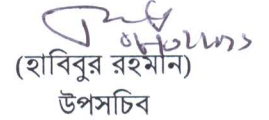 (হাবিবুর রহমান)
উপসচিব